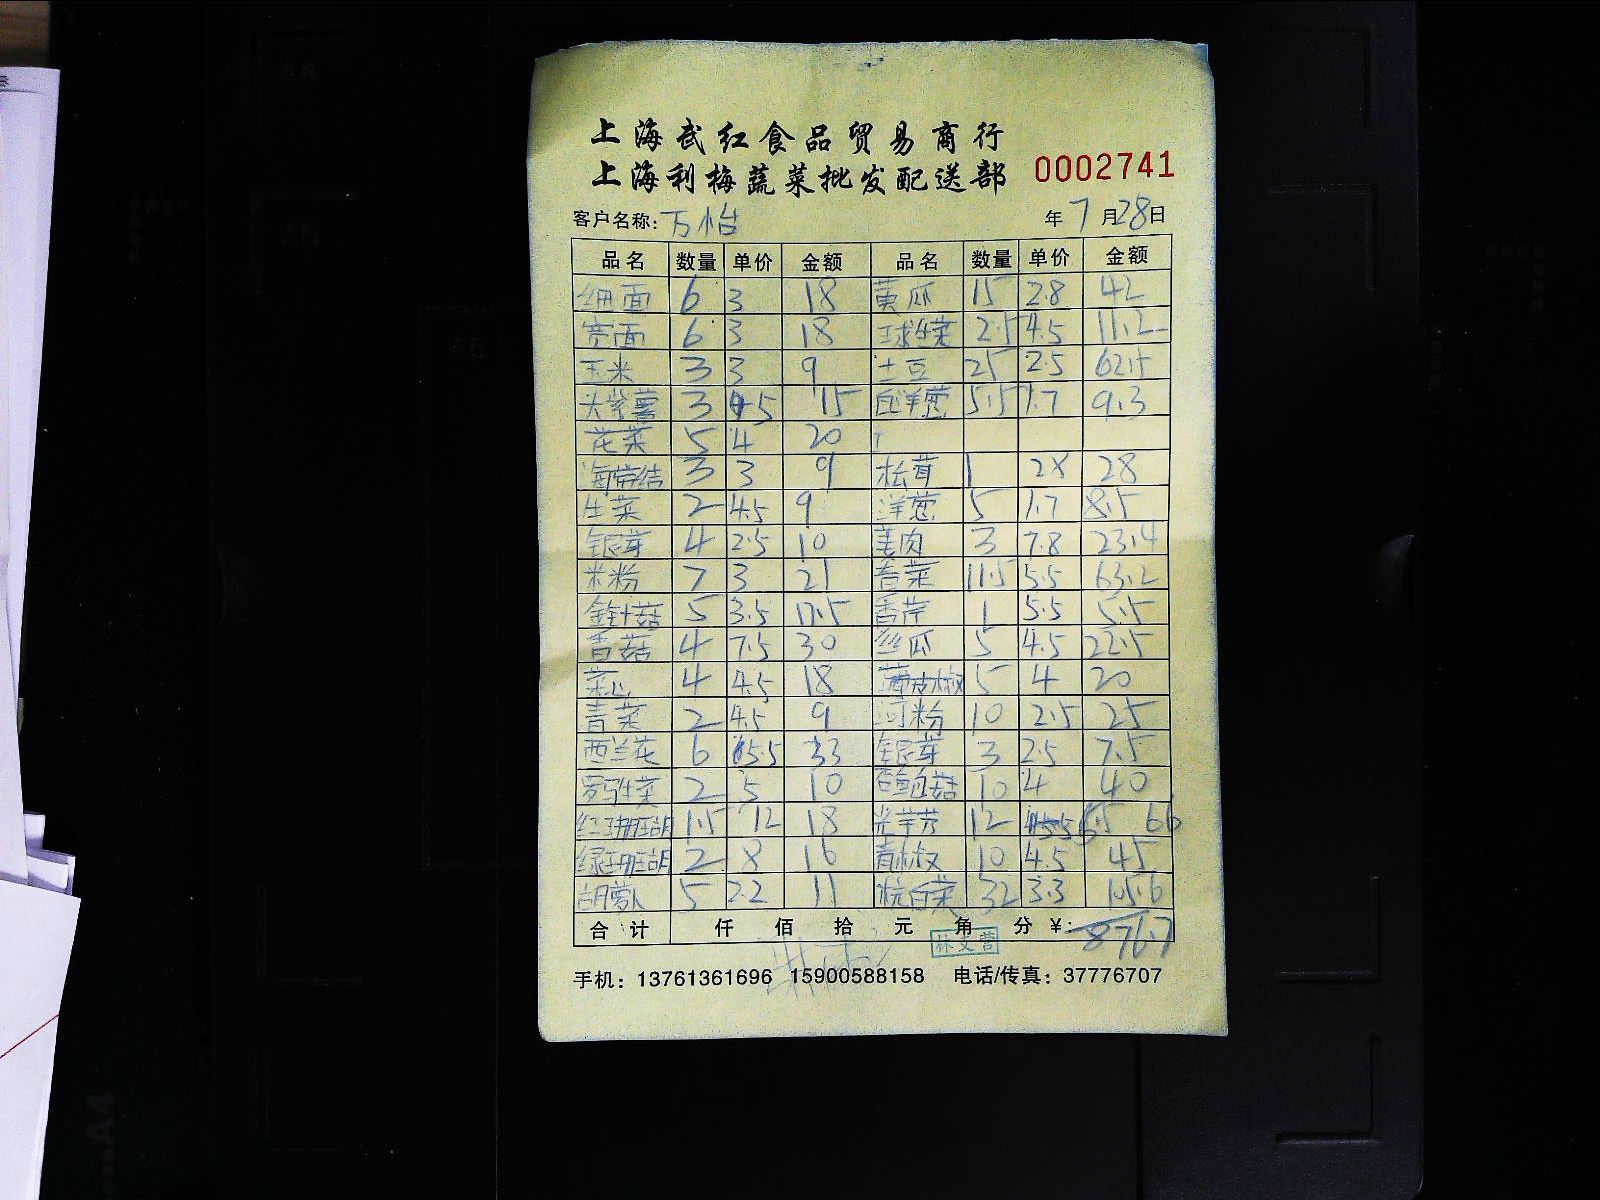 上海武红食品贸易商行
上海利梅蔬菜批发配送部 0002741
客户名称: 万怡 年 7 月 28 日
品名 数量 单价 金额 品名 数量 单价 金额
细面 6 3 18 黄瓜 15 2.8 42
宽面 6 3 18 球生菜 2.5 4.5 11.2
玉米 3 3 9 土豆 25 2.5 62.5
大紫薯 3 5 15 白洋葱 5.5 1.7 9.3
花菜 5 4 20
海带结 3 3 9 松茸 1 28 28
生菜 2 4.5 9 洋葱 5 1.7 8.5
银芽 4 2.5 10 姜肉 3 7.8 23.4
米粉 7 3 21 香菜 11.5 5.5 63.2
金针菇 5 3.5 17.5 香芹 1 5.5 5.5
香菇 4 7.5 30 丝瓜 5 4.5 22.5
菜心 4 4.5 18 薄皮椒 5 4 20
青菜 2 4.5 9 河粉 10 2.5 25
西兰花 6 5.5 33 银芽 3 2.5 7.5
罗马生菜 2 5 10 白玉菇 10 4 40
红珊瑚 1.5 12 18 光芋艿 12 5.5 66
绿珊瑚 2 8 16 青椒 10 4.5 45
胡萝卜 5 2.2 11 杭白菜 32 3.3 105.6
合计 仟 佰 拾 元 角 分 ¥: 876.7
手机: 13761361696 15900588158 电话/传真: 37776707